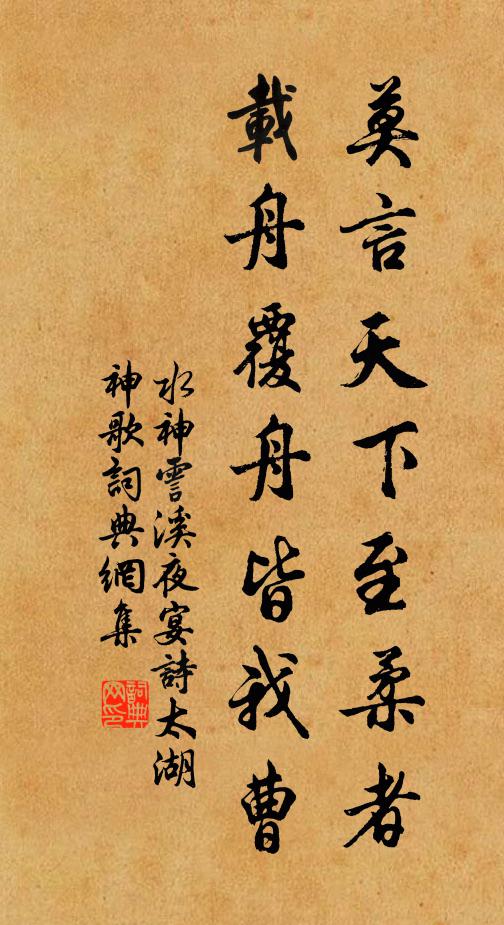 莫言天下至柔者
載舟覆舟皆我曹
水神雪溪夜宴詩太湖
神歌詞典網集
詞典
网印